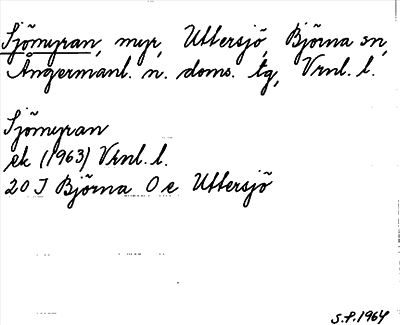 Sjömyran, myr, Uttersjö, Björna sn,
Ångermanl. n. doms. tg, Vrnl. l.
Sjömyran
ek (1963) Vrnl. l.
20 I Björna O e Uttersjö
S.P. 1964